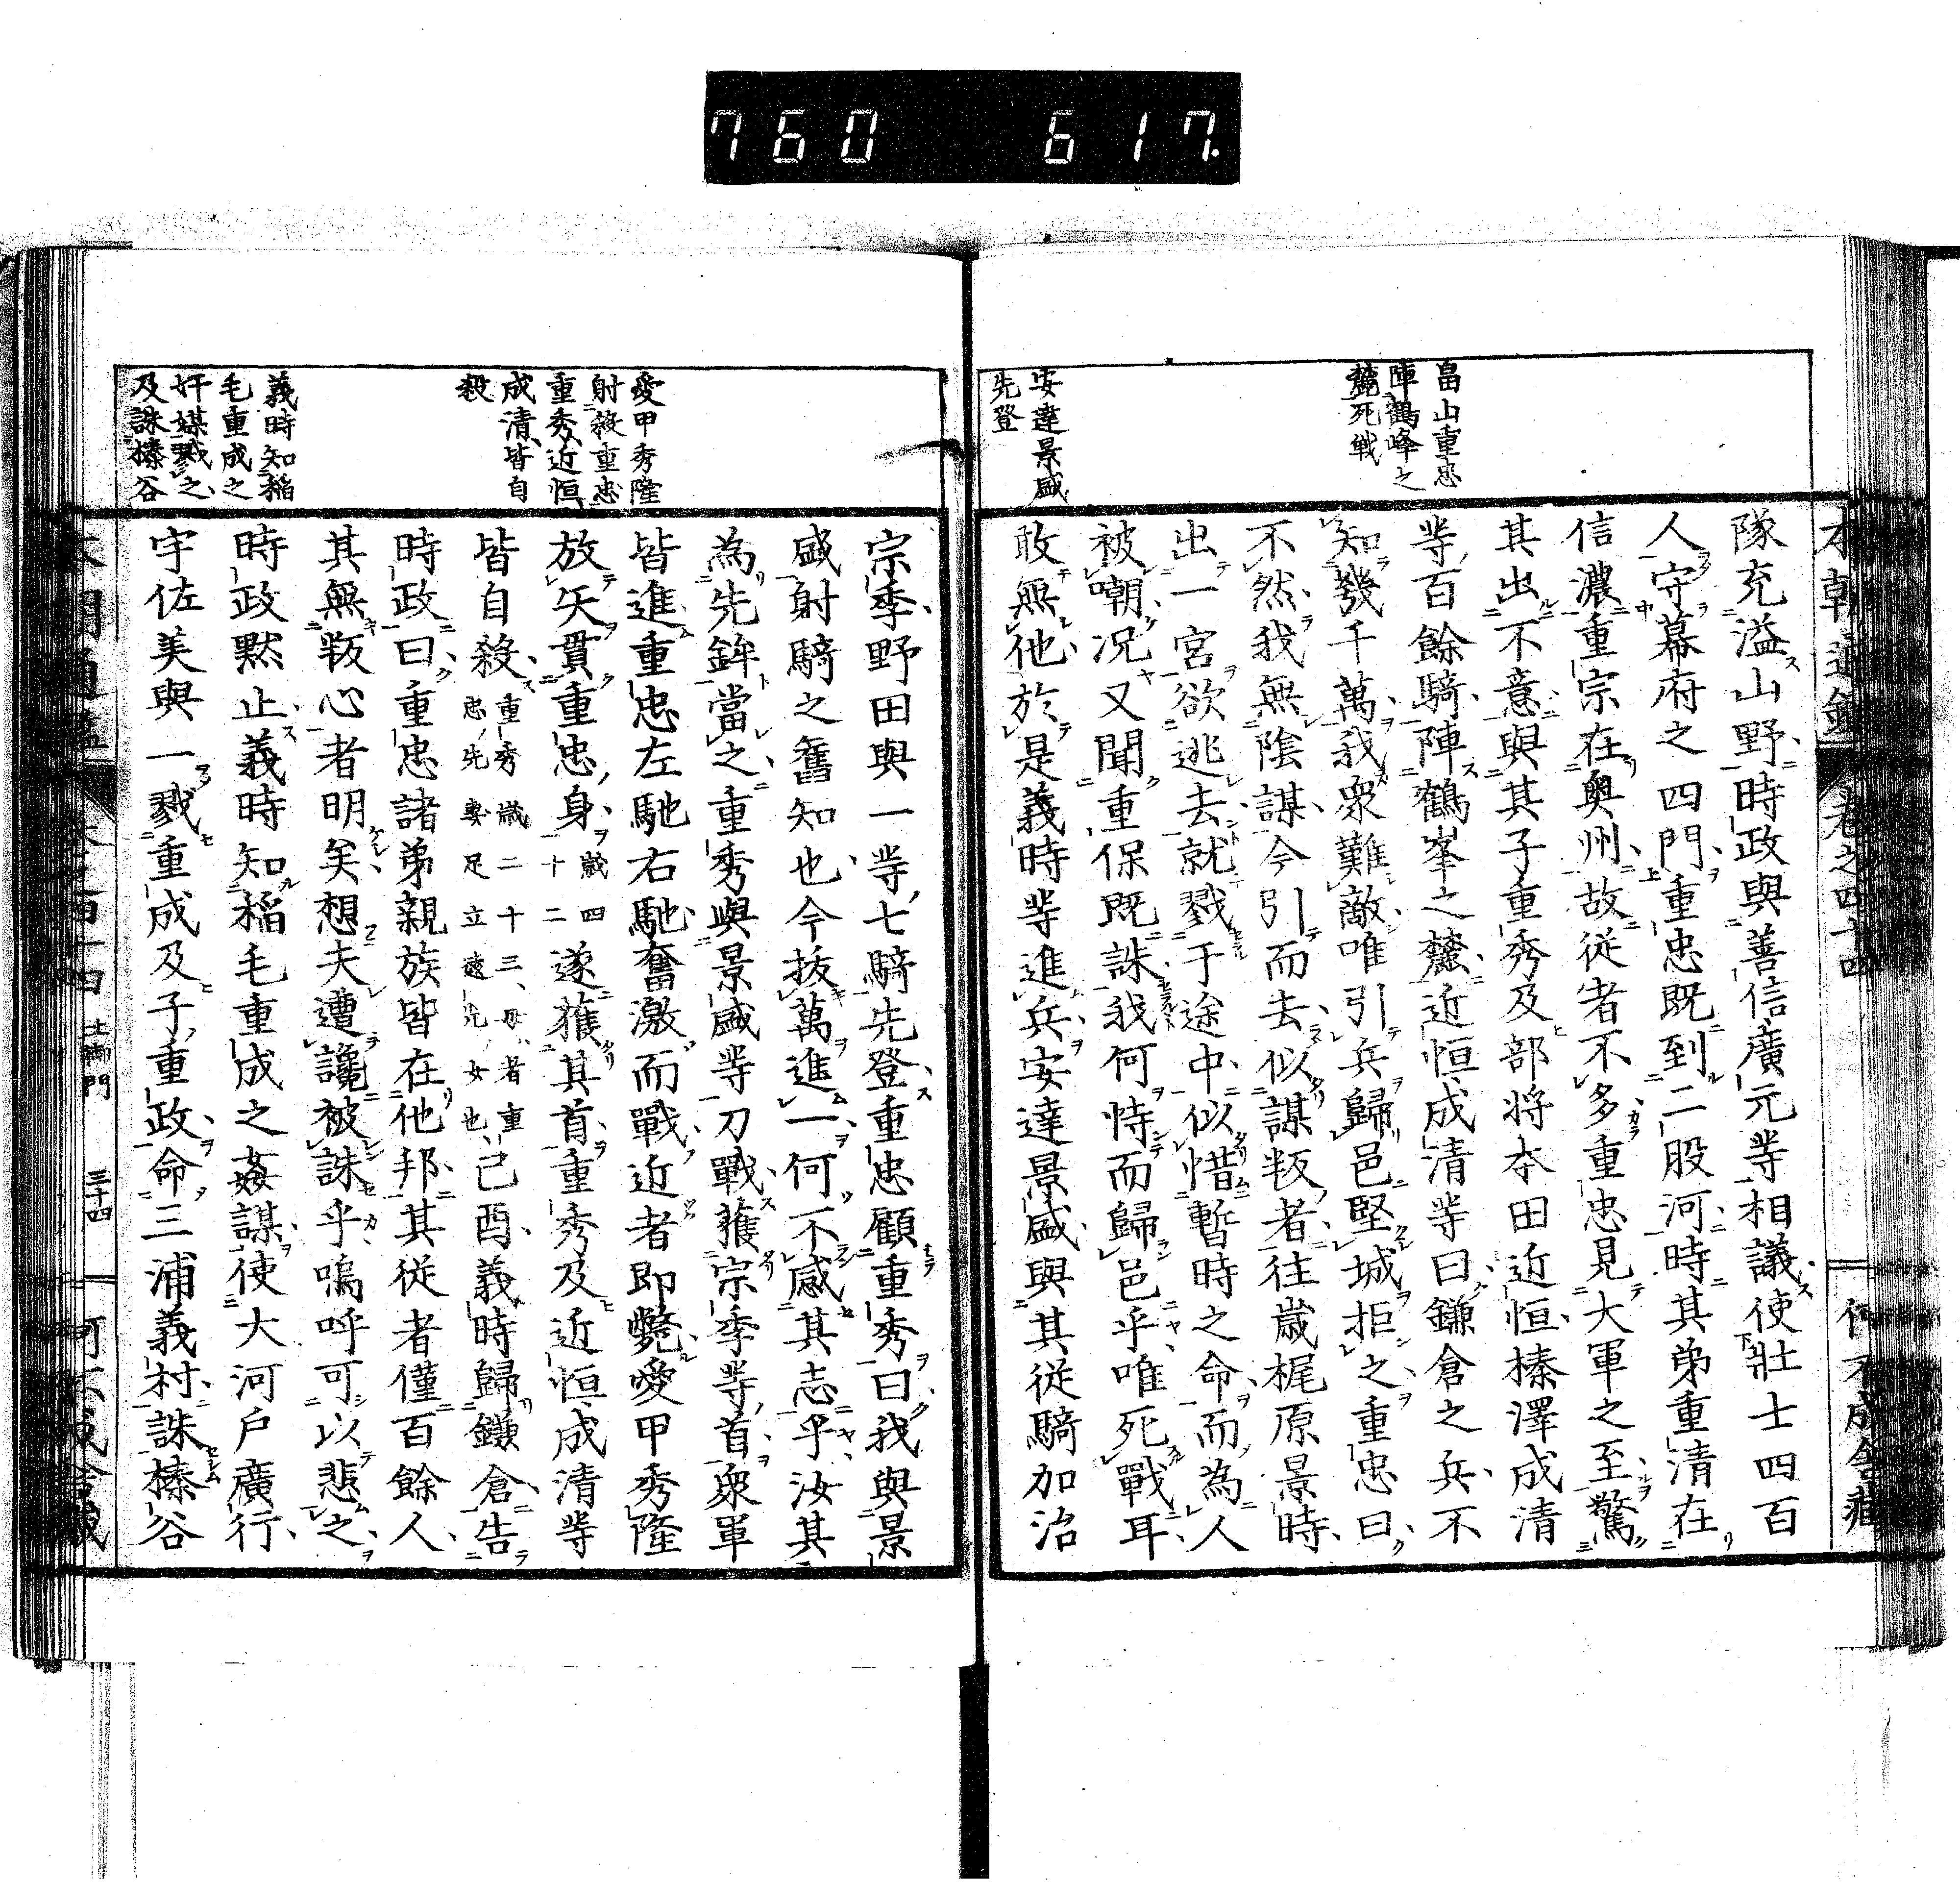 760 617
畠山重忠
陣鶴峰之
麓死戦
安達景盛
先登
隊充溢山野時政與善信廣元等相議使壮士四百
人守幕府之四門重忠既到二股河時其弟重清在
信濃重宗在奥州故従者不多重忠見大軍之至驚
其出不意與其子重秀及部将本田近恒榛澤成清
等百餘騎陣鶴峯之麓近恒成清等曰鎌倉之兵不
知幾千萬我衆難敵唯引兵歸邑堅城拒之重忠曰
不然我無陰謀今引而去似謀叛者往歳梶原景時
出一宮欲逃去就戮于途中似惜暫時之命而為人
被嘲况又聞重保既誅我何恃而歸邑乎唯死戰耳
敢無他於是義時等進兵安達景盛與其従騎加治
愛甲秀隆
射殺重忠
重秀近恒
成清皆自
殺
義時知稲
毛重成之
奸媒戮之
及誅榛谷
宗季野田與一等七騎先登重忠顧重秀曰我與景
盛射騎之舊知也今抜萬進一何不感其志乎汝其
為先鉾當之重秀與景盛等刀戰獲宗季等首衆軍
皆進重忠左馳右馳奮激而戰近者即斃愛甲秀隆
放矢貫重忠身歳四十二遂獲其首重秀及近恒成清等
皆自殺重秀歳二十三母者重忠先妻足立遠元女也己酉義時歸鎌倉告
時政曰重忠諸弟親族皆在他邦其従者僅百餘人
其無叛心者明矣想夫遭讒被誅乎嗚呼可以悲之
時政黙止義時知稲毛重成之姦謀使大河戸廣行
宇佐美與一戮重成及子重政命三浦義村誅榛谷
本朝通鑑 巻之四十四
土御門 三十四